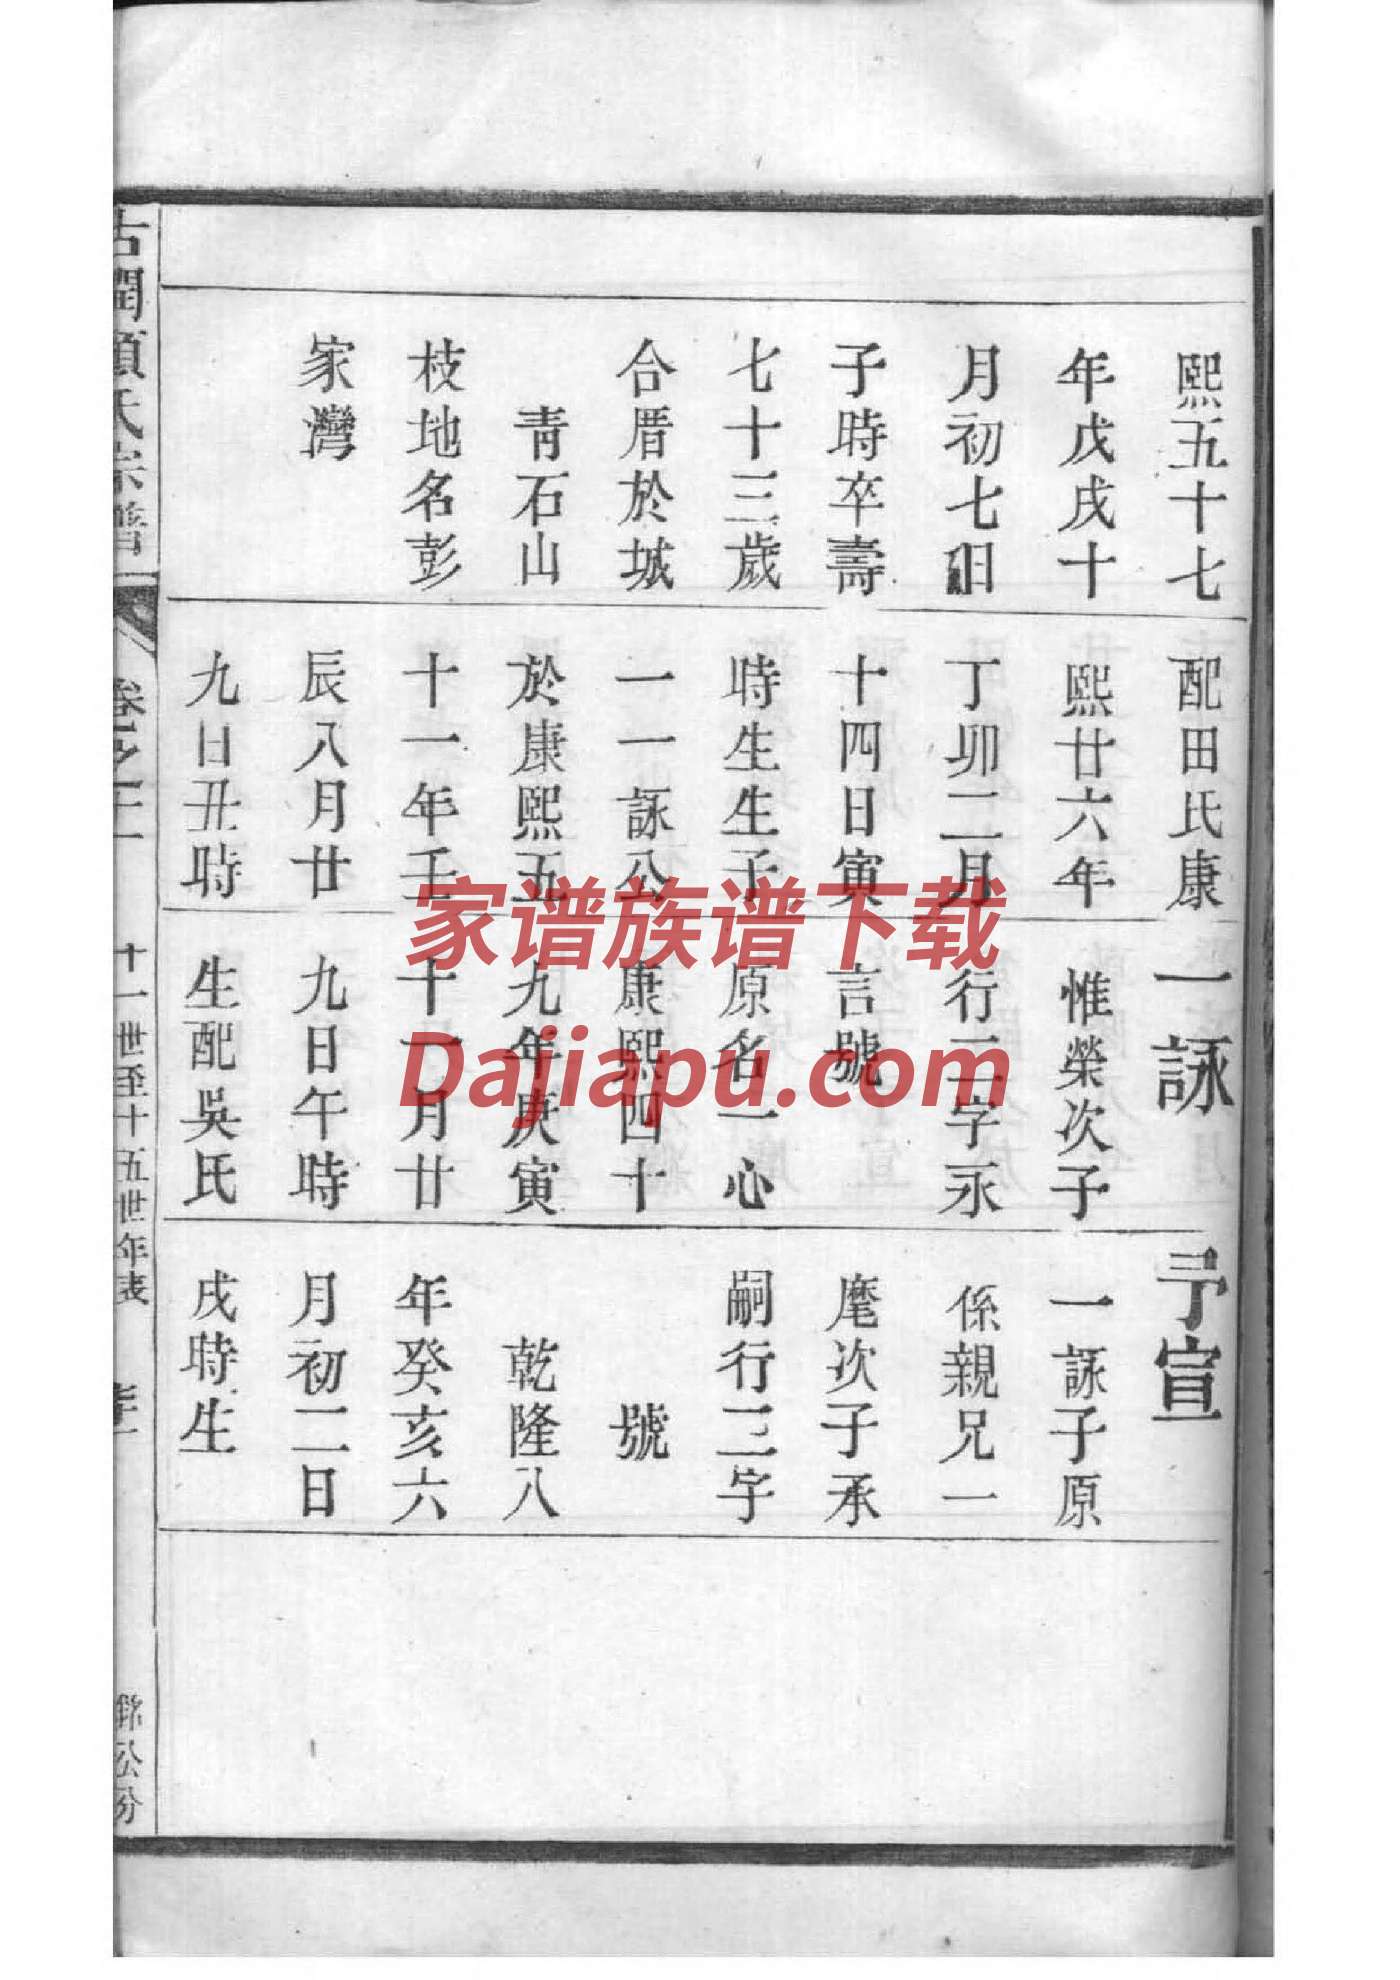 熙五十七
年戊戌十
月初七日
子時卒壽
七十三歲
合厝於城
青石山
枝地名彭
家灣
配田氏康
熙廿六年
丁卯二月
十四日寅
時生生子
一一詠公
於康熙五
十一年壬
辰八月廿
九日丑時
一詠
惟榮次子
行二字永
言號
原名一心
康熙四十
九年庚寅
十一月廿
九日午時
生配吳氏
予宣
一詠子原
係親兄一
麾次子承
嗣行三字
號
乾隆八
年癸亥六
月初二日
戌時生
古潤顧氏宗譜
卷之二
十一世至十五世年表
錦公分
家谱族谱下载
Dajiapu.com